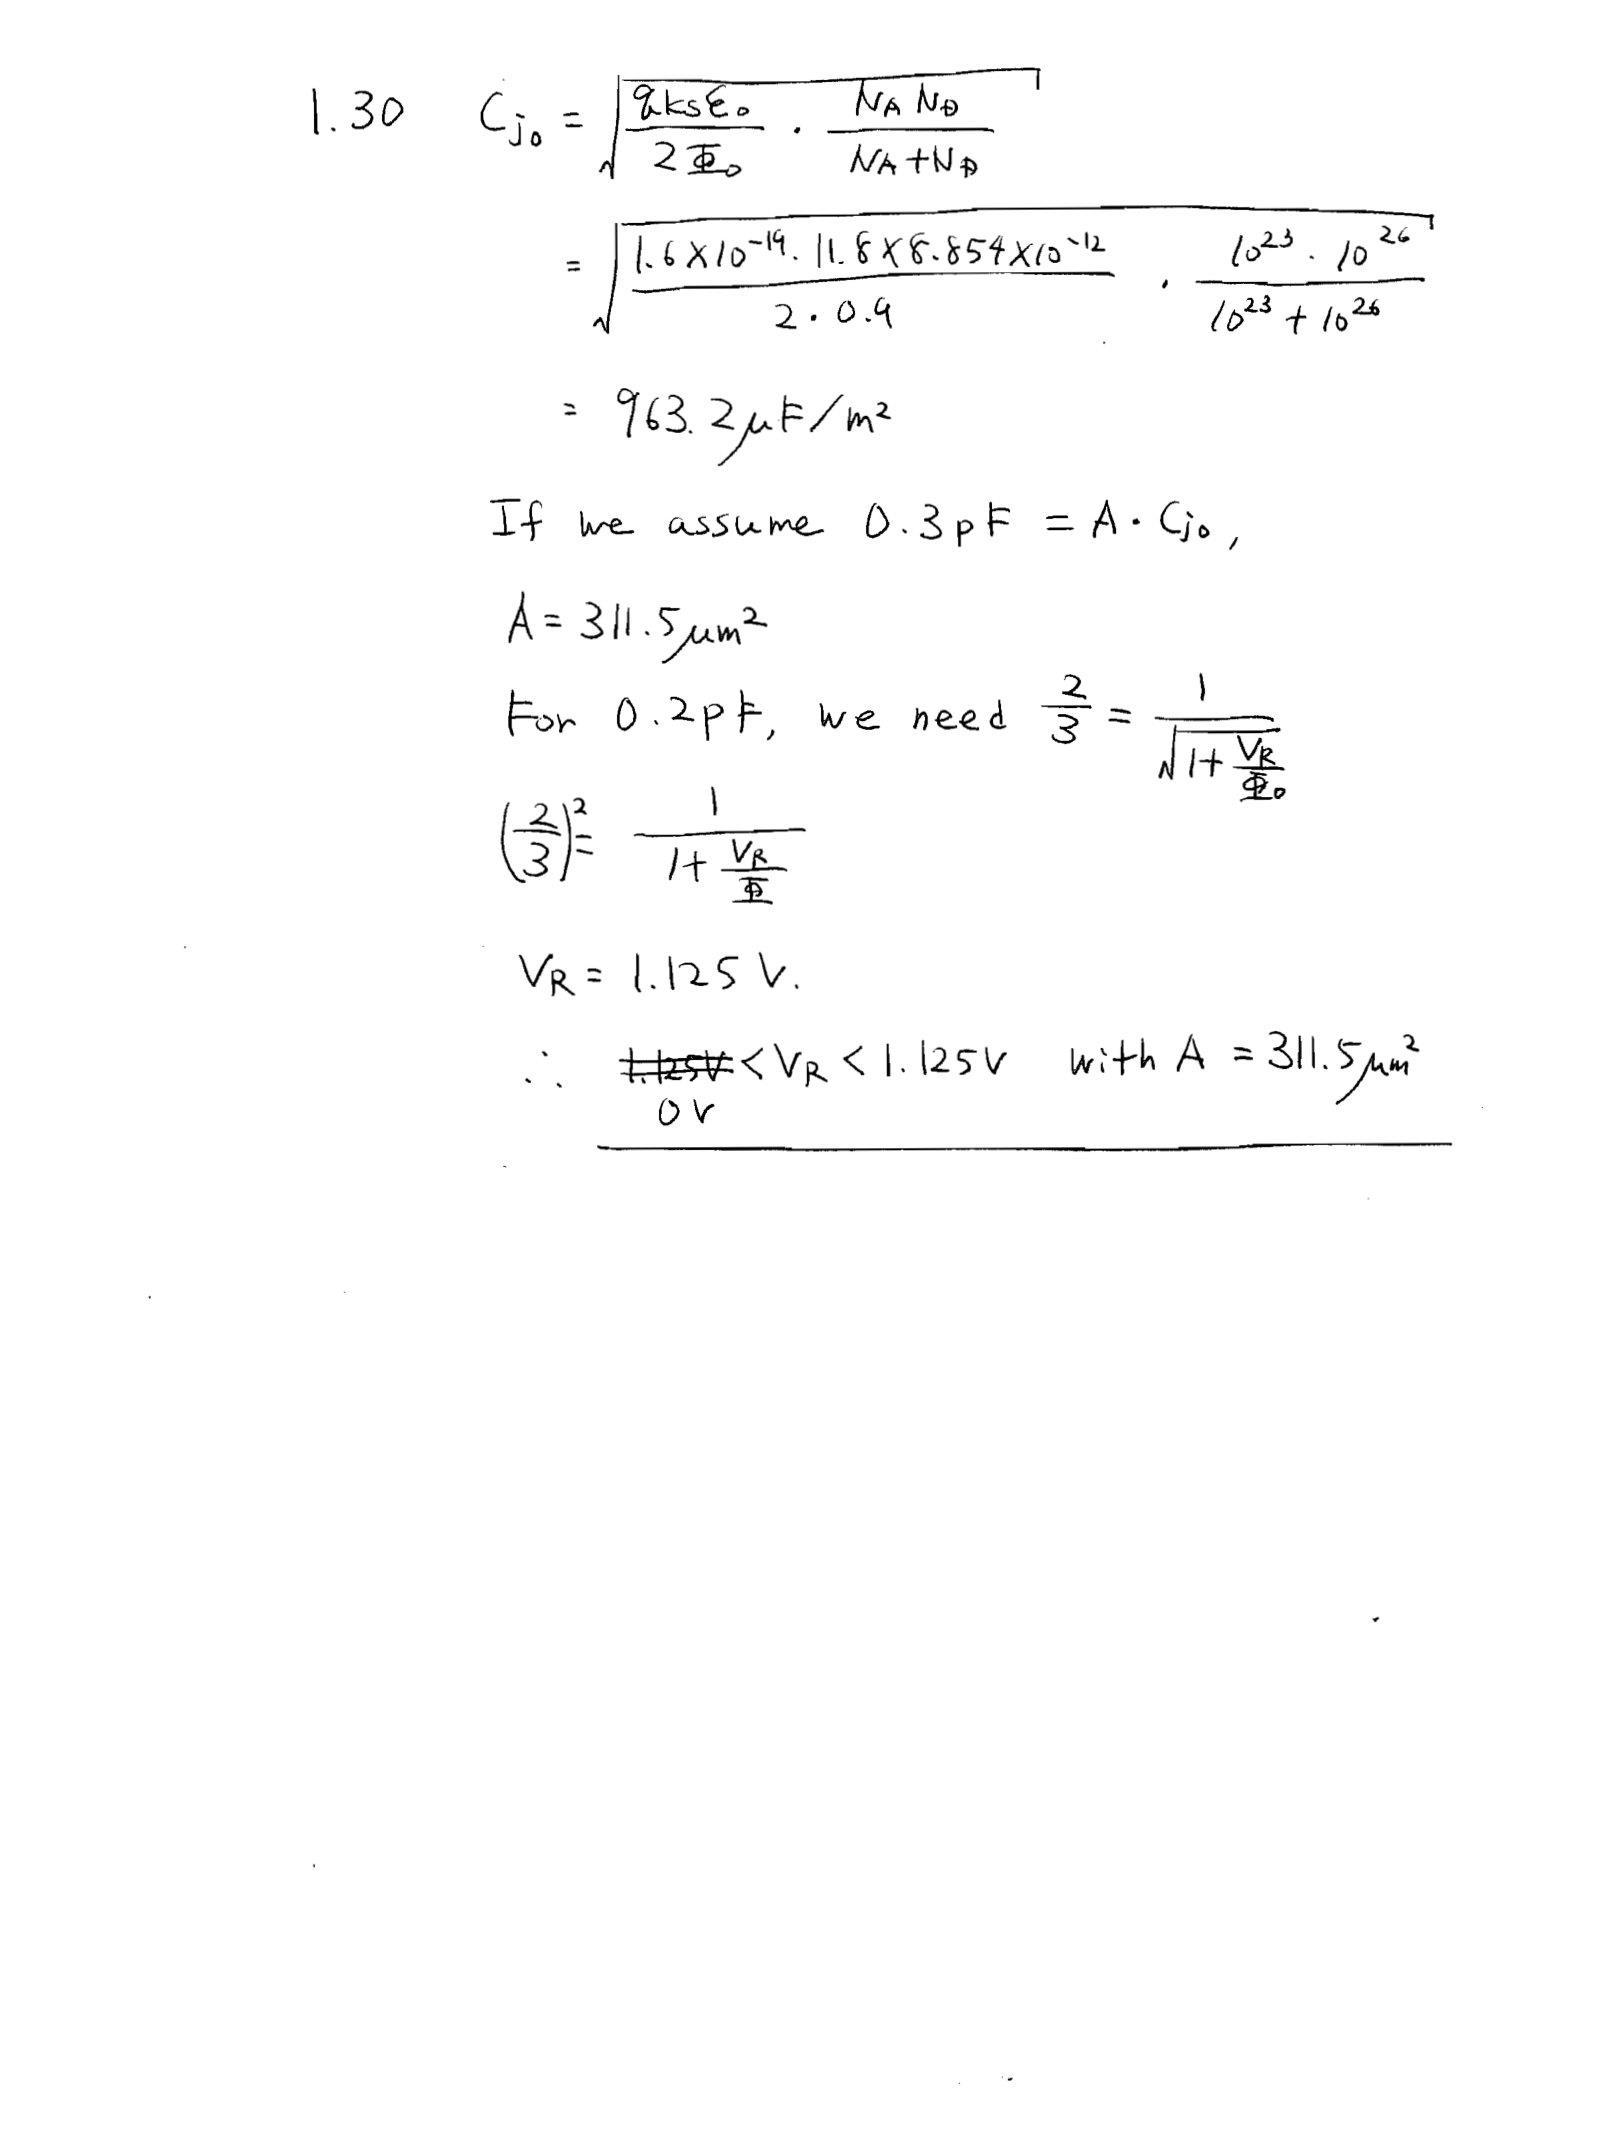 1.30 Cj₀ = √(qksε₀/2Φ₀ · NA ND/NA+ND)
= √(1.6×10⁻¹⁹ · 11.8×8.854×10⁻¹²/2·0.9 · 10²³ · 10²⁶/10²³+10²⁶)
= 963.2μF/m²
If we assume 0.3pF = A·Cj₀,
A = 311.5μm²
For 0.2pF, we need 2/3 = 1/√(1+VR/Φ₀)
(2/3)² = 1/(1+VR/Φ)
VR = 1.125 V.
∴ 1.125V < VR < 1.125V with A = 311.5μm²
0V